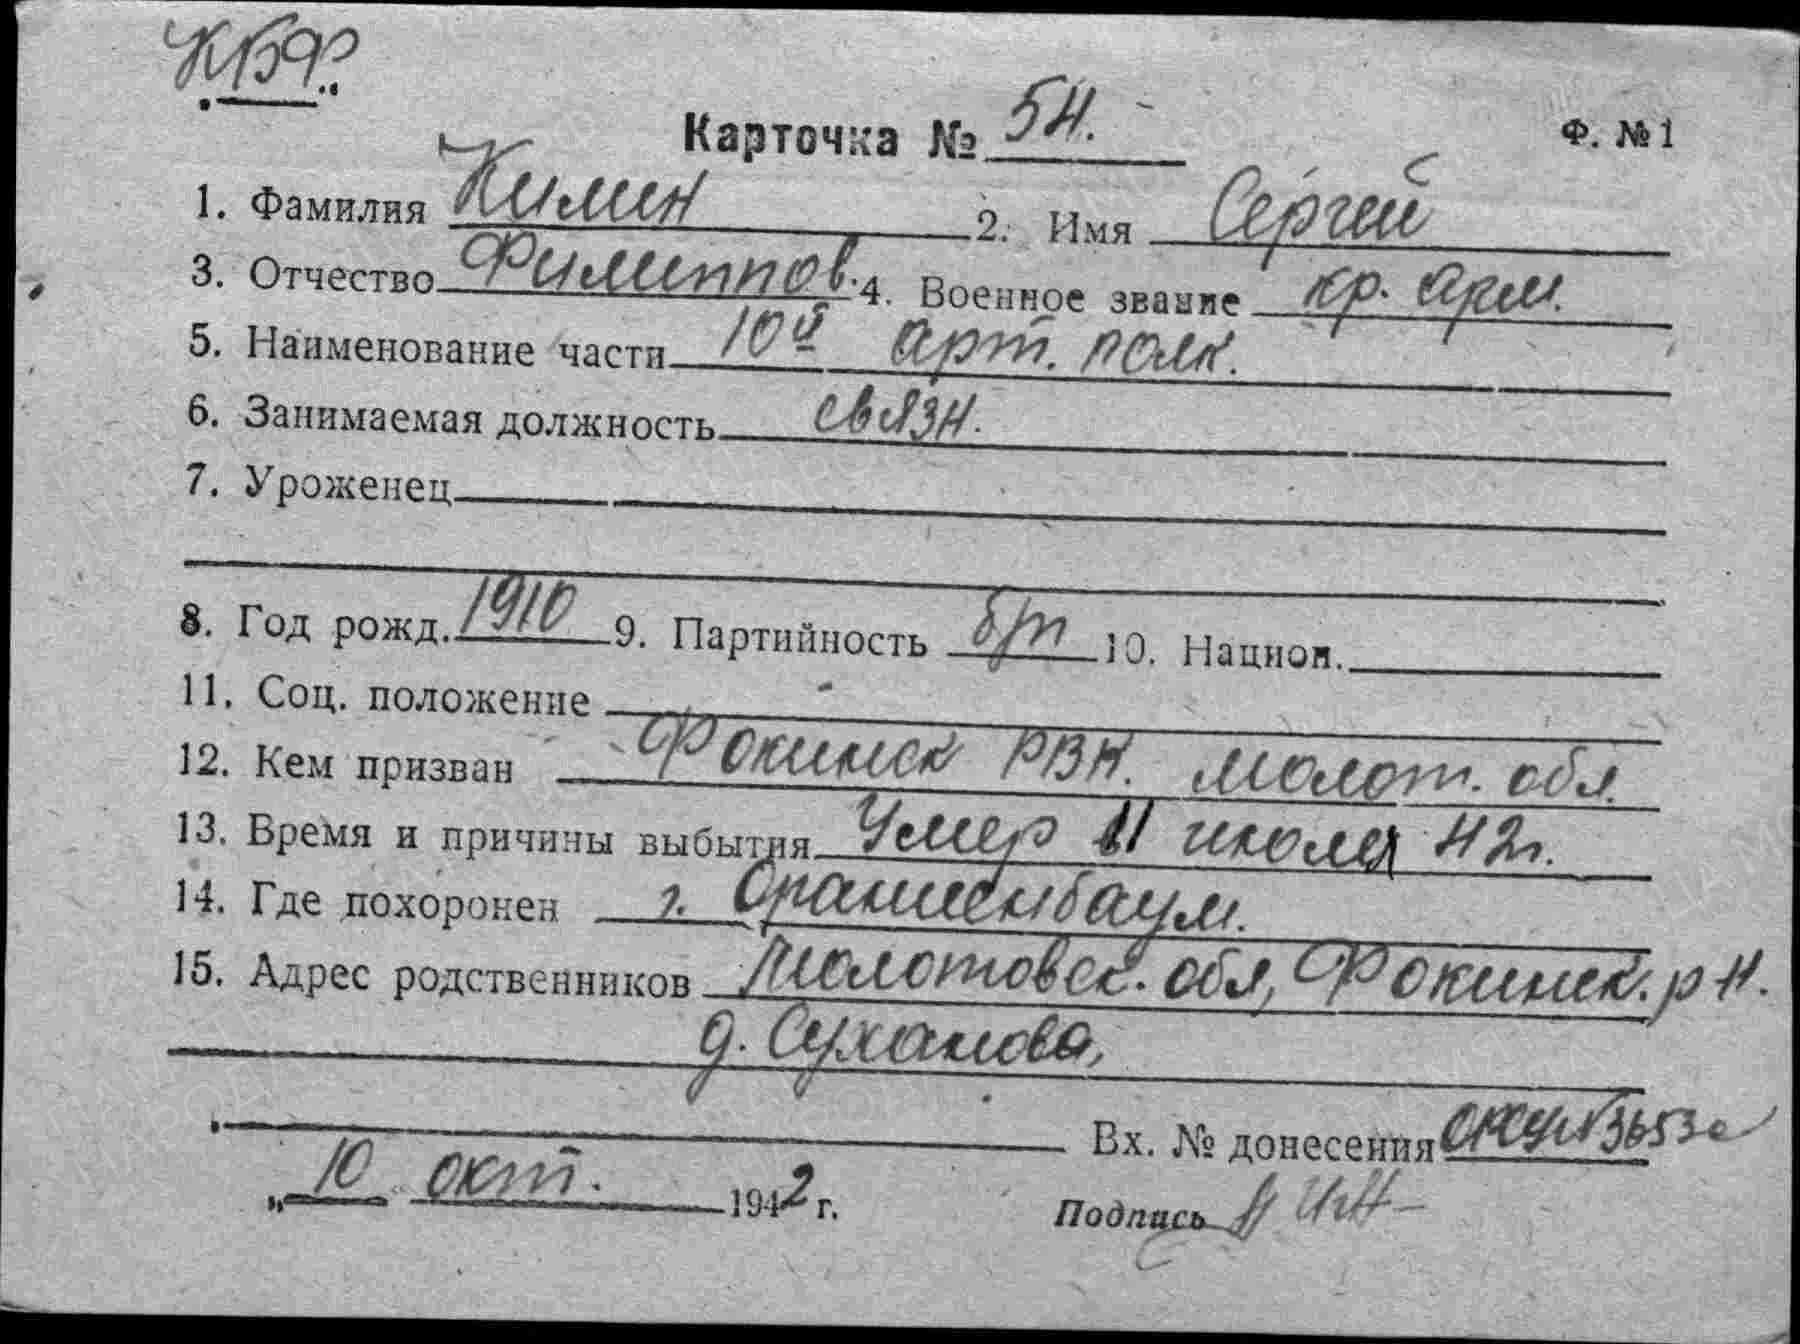 КБФ.
Карточка № 54. Ф. № 1
1. Фамилия Кимин 2. Имя Сергей
3. Отчество Филиппов. 4. Военное звание кр. арм.
5. Наименование части 10й арт. полк.
6. Занимаемая должность связн.
7. Уроженец
8. Год рожд. 1910 9. Партийность б/п 10. Национ.
11. Соц. положение
12. Кем призван Фокинск РВК. Молот. обл.
13. Время и причины выбытия Умер 11 июля 42г.
14. Где похоронен г. Ораниенбаум.
15. Адрес родственников Молотовск. обл, Фокинск. р-н.
д. Суханова,
Вх. № донесения
„10 окт. 1942 г. Подпись